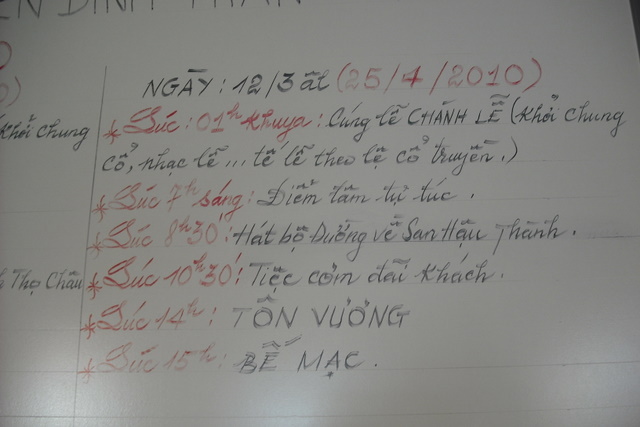 NGÀY: 12/3 âl (25/4/2010)
khởi chung
* Lúc: 01h khuya: Cúng tế CHÁNH LỄ (khởi chung
cổ, nhạc lễ... tế lễ theo lệ cổ truyền.)
* Lúc 7h sáng: Điểm tâm tự túc.
* Lúc 8h30': Hát bộ Đưởng về San Hậu Thành.
Thọ Châu
* Lúc 10h30': Tiệc cơm đãi khách.
* Lúc 14h: TÔN VƯƠNG
* Lúc 15h: BẾ MẠC.